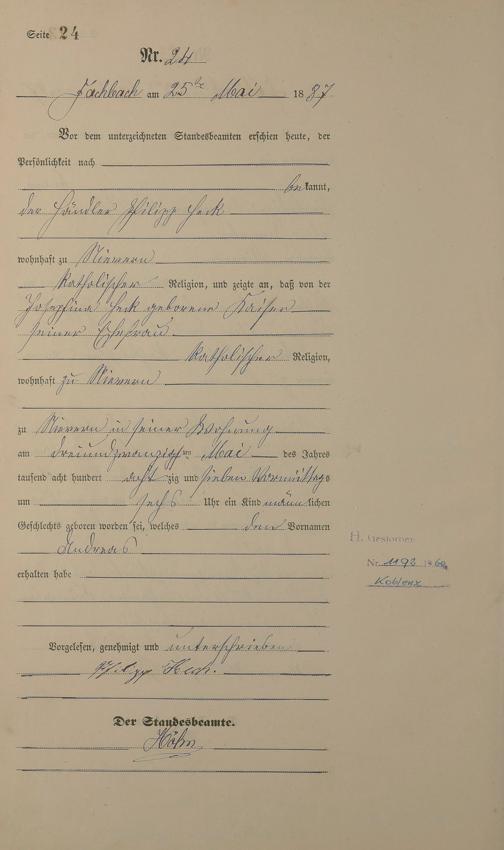 Seite 24
Nr. 24
Fachbach am 25ten Mai 1887
Vor dem unterzeichneten Standesbeamten erschien heute, der
Persönlichkeit nach
bekannt,
der Händler Philipp Heck
wohnhaft zu Nievern
katholischer Religion, und zeigte an, daß von der
Josephina Heck geborene Kaiser
seiner Ehefrau
katholischer Religion,
wohnhaft zu Nievern
zu Nievern in seiner Wohnung
am dreiundzwanzigsten Mai des Jahres
tausend acht hundert achtzig und sieben Vormittags
um sechs Uhr ein Kind männlichen
Geschlechts geboren worden sei, welches den Vornamen
Andreas
erhalten habe
Vorgelesen, genehmigt und unterschrieben
Philipp Heck.
Der Standesbeamte.
Höhn
H. Gestorben
Nr. 1192 1960
Koblenz